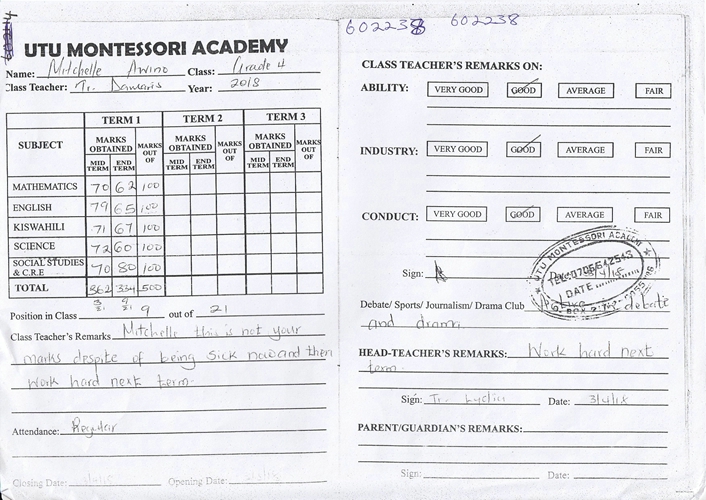 602238 602238
UTU MONTESSORI ACADEMY
Name: Mitchelle Awino Class: Grade 4
Class Teacher: Tr. Damaris Year: 2018
TERM 1 TERM 2 TERM 3
SUBJECT MARKS OBTAINED MARKS OUT OF MARKS OBTAINED MARKS OUT OF MARKS OBTAINED MARKS OUT OF
MID TERM END TERM MID TERM END TERM MID TERM END TERM
MATHEMATICS 70 62 100
ENGLISH 79 65 100
KISWAHILI 71 67 100
SCIENCE 72 60 100
SOCIAL STUDIES & C.R.E 70 80 100
TOTAL 362 334 500
Position in Class 9 out of 21
Class Teacher's Remarks Mitchelle this is not your
marks despite of being sick now and then
work hard next term.
Attendance: Regular
Closing Date: Opening Date:
CLASS TEACHER'S REMARKS ON:
ABILITY: VERY GOOD GOOD AVERAGE FAIR
INDUSTRY: VERY GOOD GOOD AVERAGE FAIR
CONDUCT: VERY GOOD GOOD AVERAGE FAIR
UTU MONTESSORI
DATE
Sign:
Debate/ Sports/ Journalism/ Drama Club debate
and drama.
HEAD-TEACHER'S REMARKS: Work hard next
term.
Sign: Tr. Lydia Date: 3/4/18
PARENT/GUARDIAN'S REMARKS:
Sign: Date: